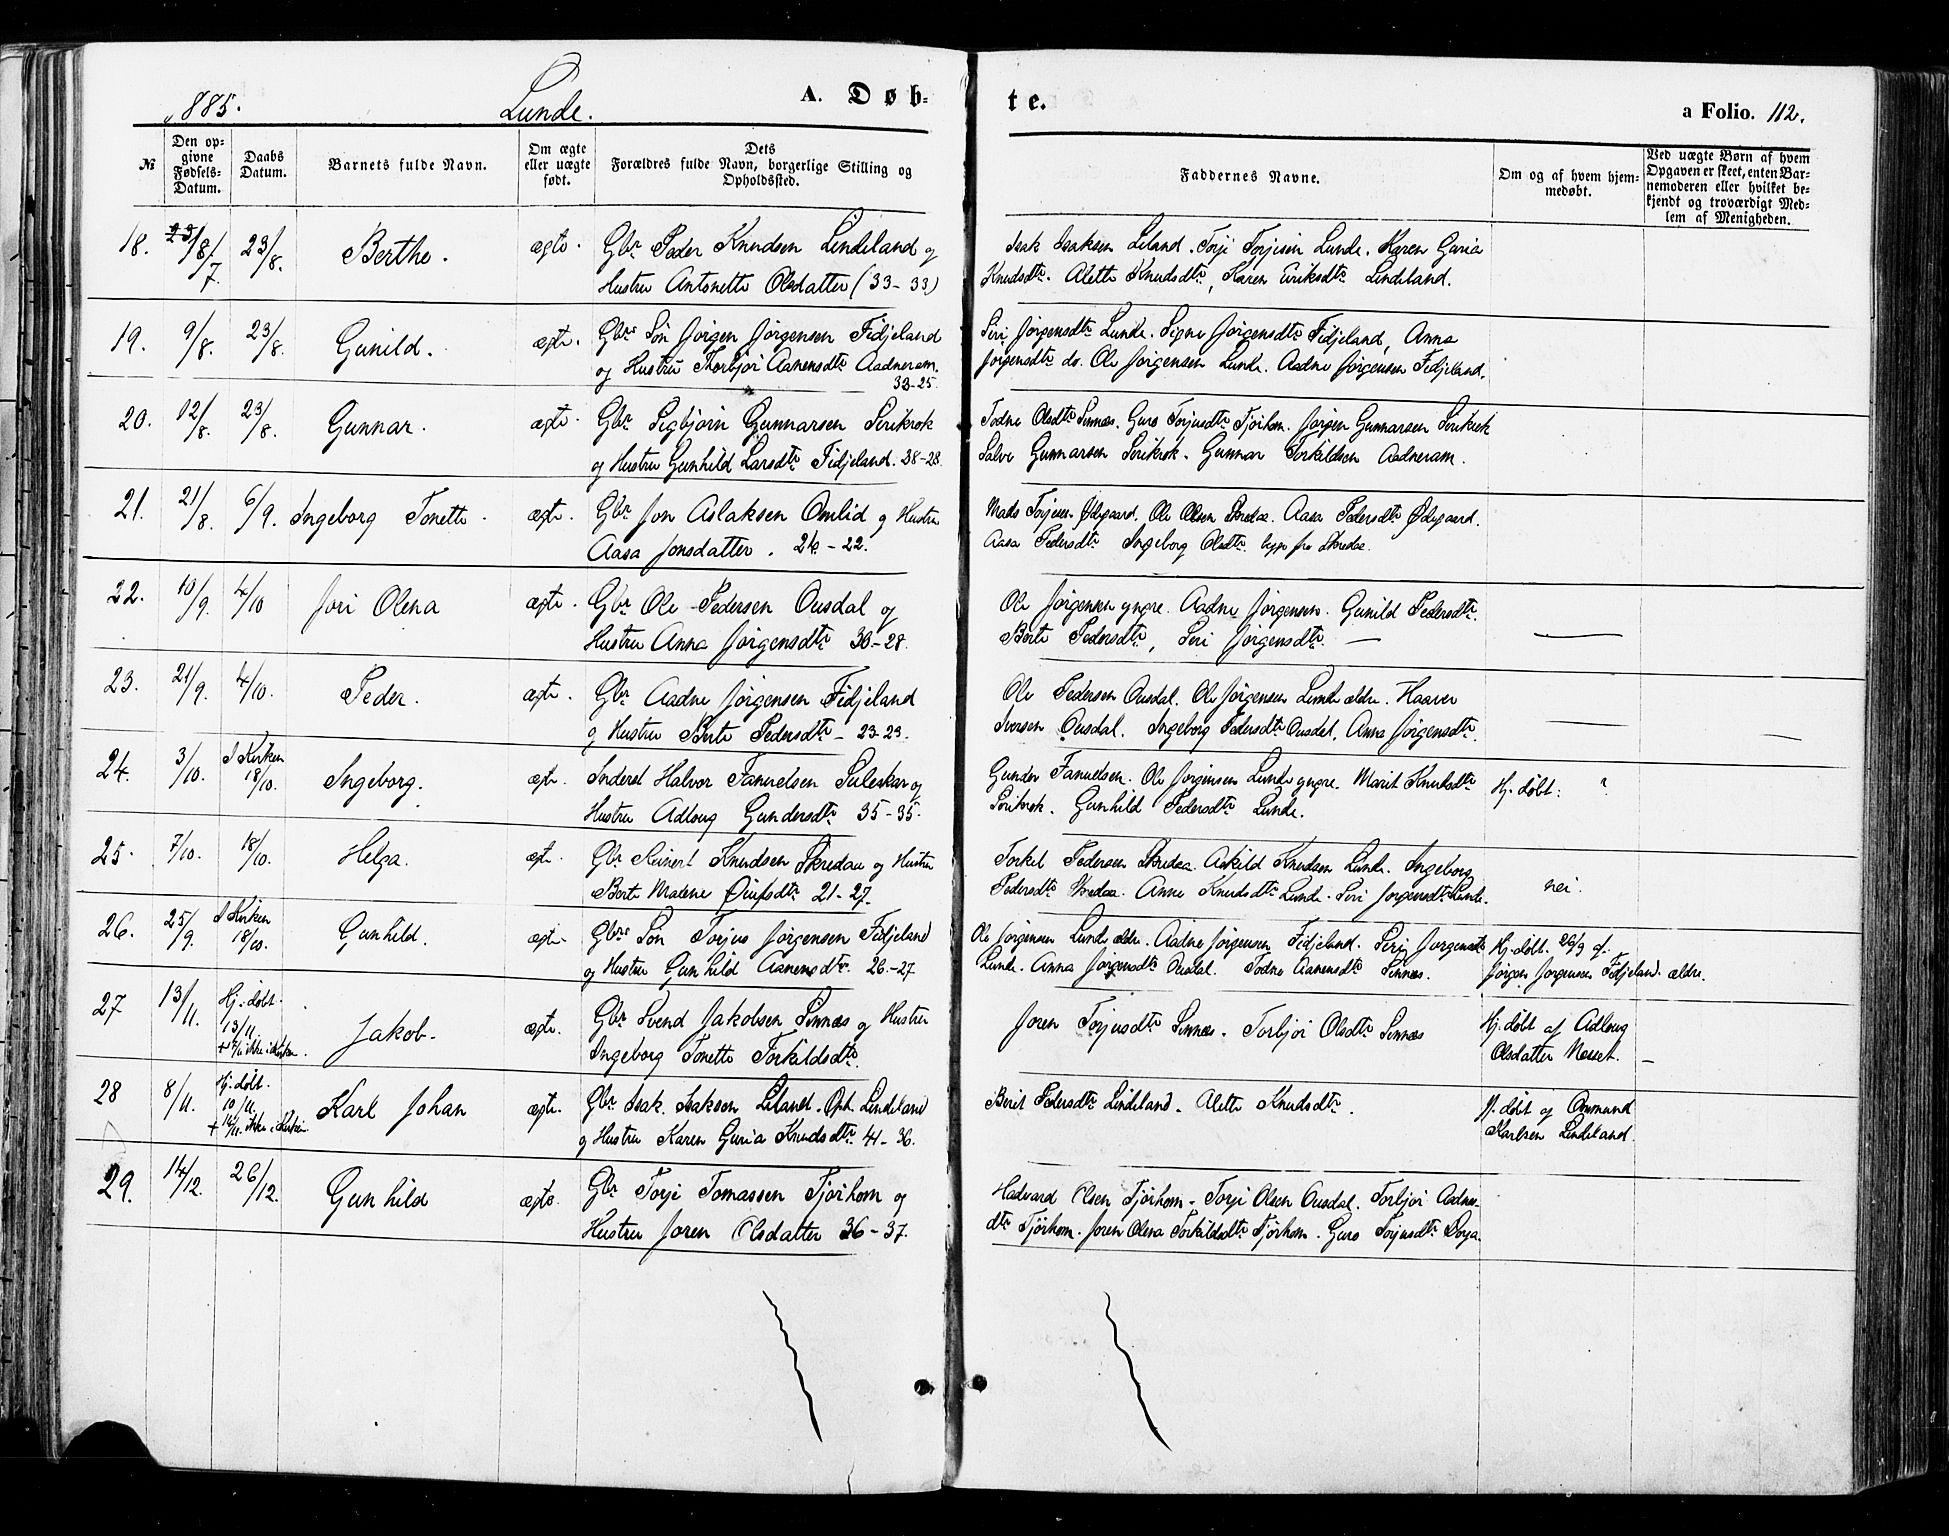 1885. Lunde. A. Døb-
te. a Folio. 112.
№ Den op-givne Fødsels-Datum. Daabs Datum. Barnets fulde Navn. Om ægte eller uægte født. Dets Forældres fulde Navn, borgerlige Stilling og Opholdssted.
Faddernes Navne. Om og af hvem hjem-medøbt. Ved uægte Børn af hvem Opgaven er skeet, enten Bar-nemoderen eller hvilket be-kjendt og troværdigt Med-lem af Menigheden.
18. 23/8/7 23/8. Berthe. ægte. Gbr Peder Knudsen Lindeland og
Hustru Antonette Olsdatter (33-33)
Isak Isaksen Liland. Torje Torjesen Lunde. Karen Guria
Knudsdtr. Alette Knudsdtr, Karen Eriksdtr Lindeland.
19. 9/8. 23/8. Gunild. ægte. Gbrs Søn Jørgen Jørgensen Fidjeland
og Hustru Thorbjør Aanensdtr Aadneram.
33-25.
Siri Jørgensdtr Lunde. Signe Jørgensdtr Fidjeland, Anna
Jørgensdtr do. Ole Jørgensen Lunde. Aadne Jørgensen Fidjeland.
20. 12/8. 23/8. Gunnar. ægte. Gbr Sigbjørn Gunnarsen Sirikrok
og Hustru Gunhild Larsdtr Fidjeland. 38-28.
Todne Olsdtr Sinnæs. Guro Torjusdtr Tjørhom. Jørgen Gunnarsen Sirikrok
Salve Gunnarsen Sirikrok. Gunnar Torkildsen Aadneram.
21. 21/8. 6/9. Ingeborg Tonette. ægte. Gbr Jon Aslaksen Omlid og Hustru
Aasa Jonsdatter. 24-22.
Mads Torjesen Ødegaard. Ole Olsen Skredaa. Aasa Pedersdtr Ødegaard.
Aasa Pedersdtr Ingeborg Olsdtr begge fra Skredaa.
22. 10/9. 4/10 Jori Olena ægte. Gbr Ole Pedersen Ousdal og
Hustru Anna Jørgensdtr 30-28.
Ole Jørgensen yngre. Aadne Jørgensen. Gunild Pedersdtr.
Berte Pedersdtr, Siri Jørgensdtr. —
23. 21/9. 4/10. Peder. ægte. Gbr Aadne Jørgensen Fidjeland
og Hustru Berte Pedersdtr - 23-23.
Ole Pedersen Ousdal. Ole Jørgensen Lunde ældre. Haaver
Iversen Ousdal. Ingeborg Pedersdtr Ousdal, Anna Jørgensdtr.
24. 3/10. I Kirken 18/10. Ingeborg. ægte. Inderst Halvor Fanuelsen Suleskar og
Hustru Adloug Gundersdtr 35-35.
Gunder Fanuelsen. Ole Jørgensen Lunde yngre. Marit Knudsdtr
Sirikrok. Gunhild Pedersdtr Lunde.
Hj. døbt:
25. 7/10. 18/10. Helga. ægte. Gbr Reinert Knudsen Skredaa og Hustru
Berte Malene 21-27.
Torkel Pedersen Skredaa. Askild Knudsen Lunde. Ingeborg
Pedersdtr Skredaa. Anne Knudsdtr Lunde. Siri Jørgensdtr Lunde.
nei.
26. 25/9. I Kirken 18/10. Gunhild. ægte. Gbrs Søn Torjus Jørgensen Fidjeland
og Hustru Gunhild Aanensdtr. 26-27
Ole Jørgensen Lunde ældre. Aadne Jørgensen Fidjeland. Siri Jørgensdtr
Lunde. Anna Jørgensdtr Ousdal. Todne Aanensdtr Sinnæs.
Hj. døbt 26/9 af
Jørgen Jørgensen Fidjeland ældre.
27 13/11. Hj. døbt. 13/11. + 7/11 ikke i Kirken. Jakob. ægte. Gbr Svend Jakobsen Sinnæs og Hustru
Ingeborg Tonette Torkildsdtr.
Joren Torjusdtr Sinnæs. Torbjør Olsdtr Sinnæs
Hj. døbt af Adloug
Olsdatter
28 8/11. Hj. døbt. 10/11. + 14/11. ikke i Kirken. Karl Johan ægte. Gbr Isak Isaksen Liland. Oph. Lindeland
og Hustru Karen Guria Knudsdtr. 41-36.
Berit Pedersdtr Lindeland. Alette Knudsdtr.
Hj. døbt af Ommund
Karlsen Lindeland.
29. 14/12. 26/12. Gunhild ægte. Gbr Torje Tomassen Tjørhom og
Hustru Joren Olsdatter 36-37.
Hadvard Olsen Tjørhom. Torje Olsen Ousdal. Torbjør Aadnes-
dtr Tjørhom. Joren Olena Torkildsdtr Tjørhom. Guro Torjusdtr Dorga.